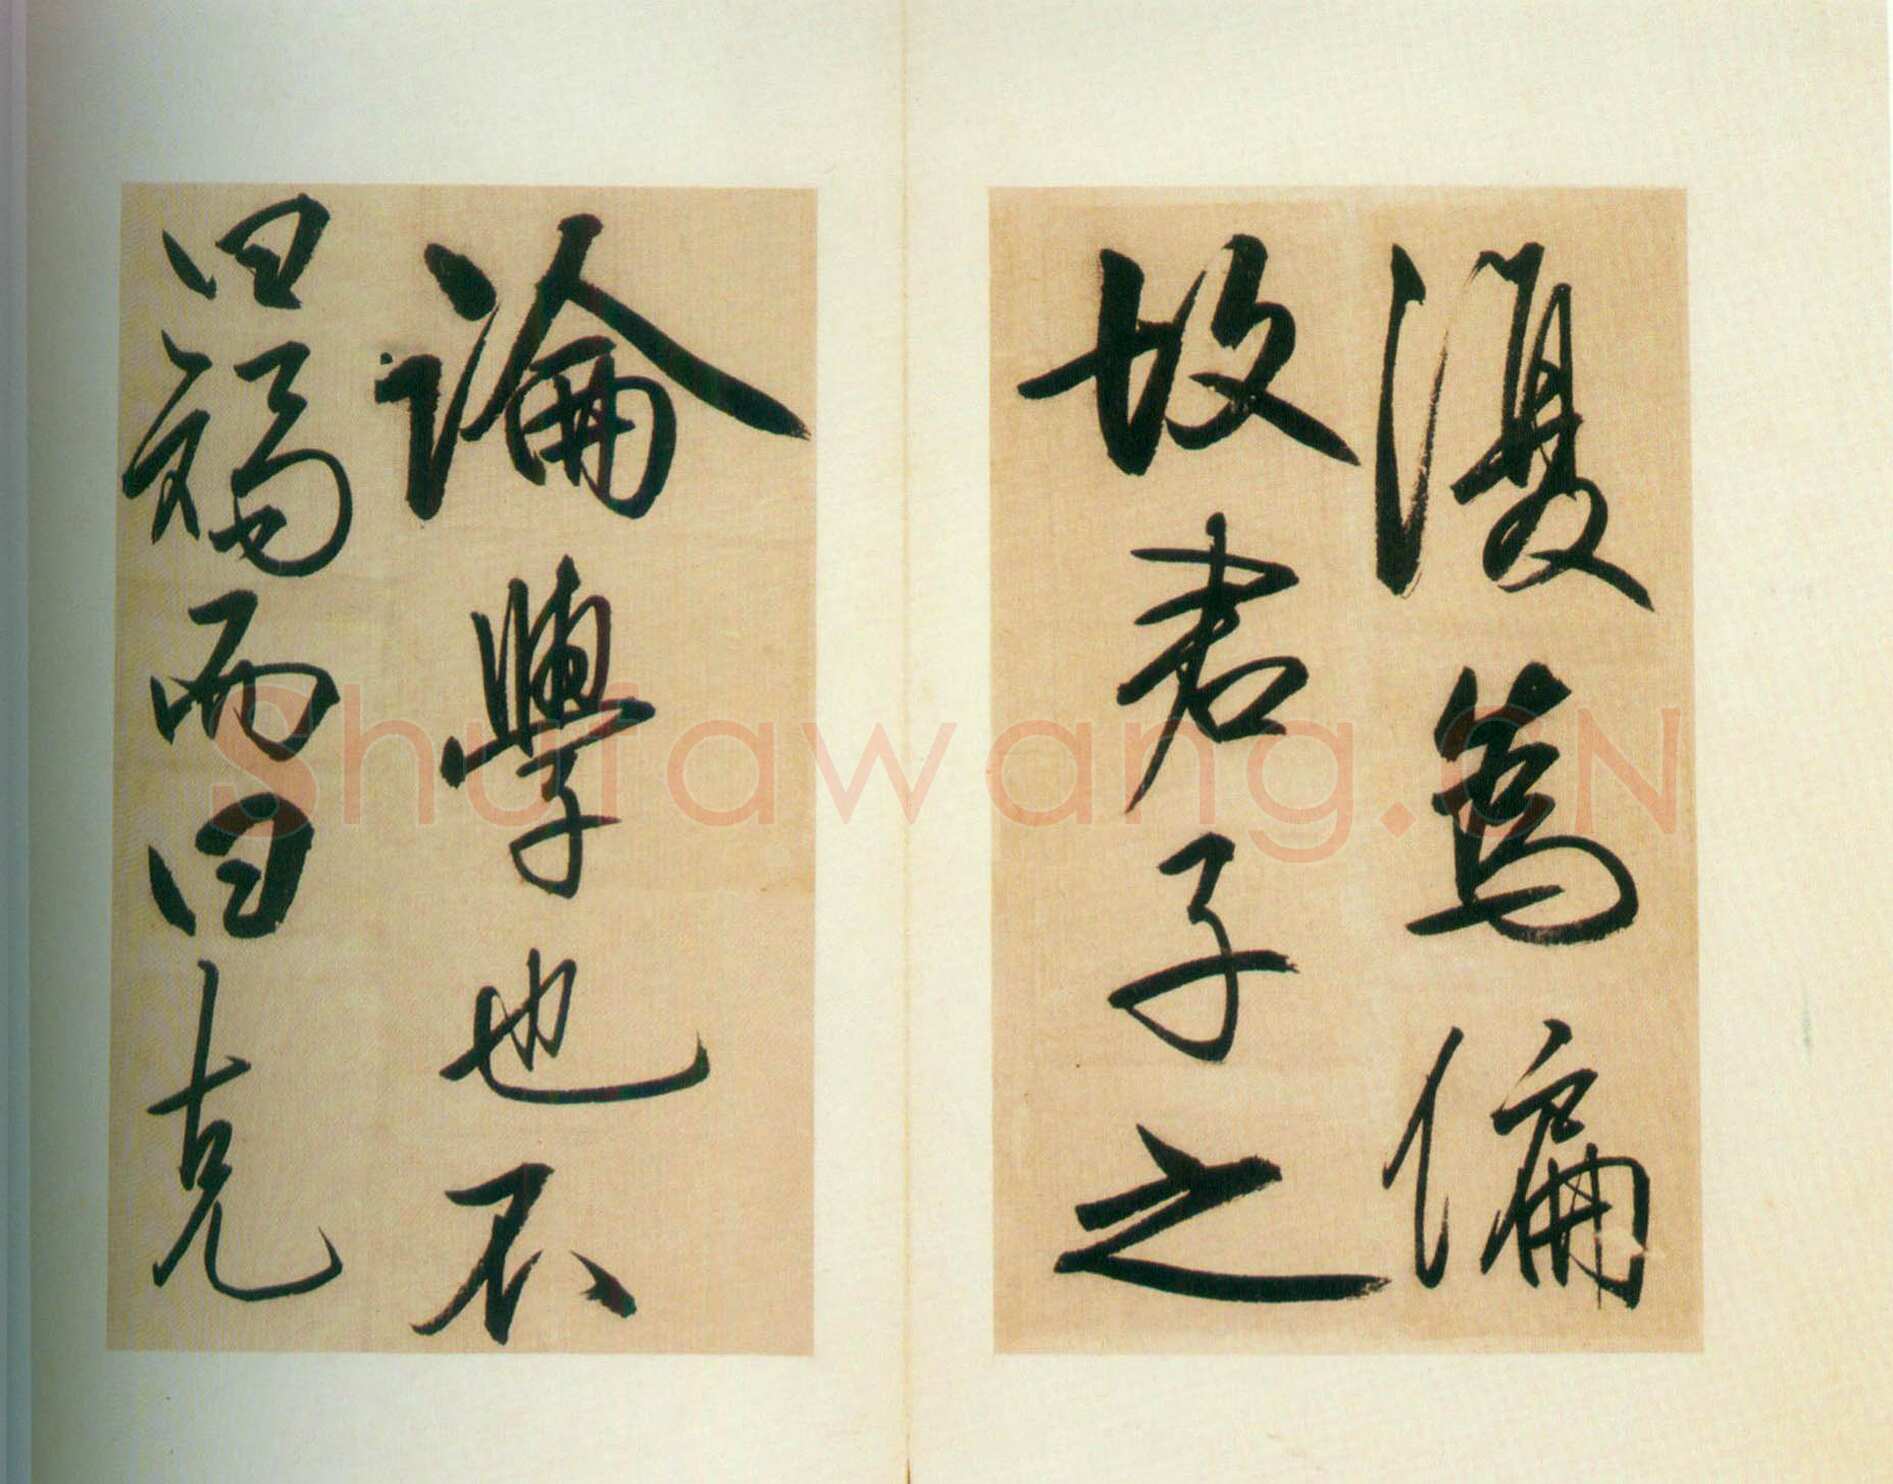 復為偏
故君子之
論學也不
曰矯而曰克
Shufawang.CN